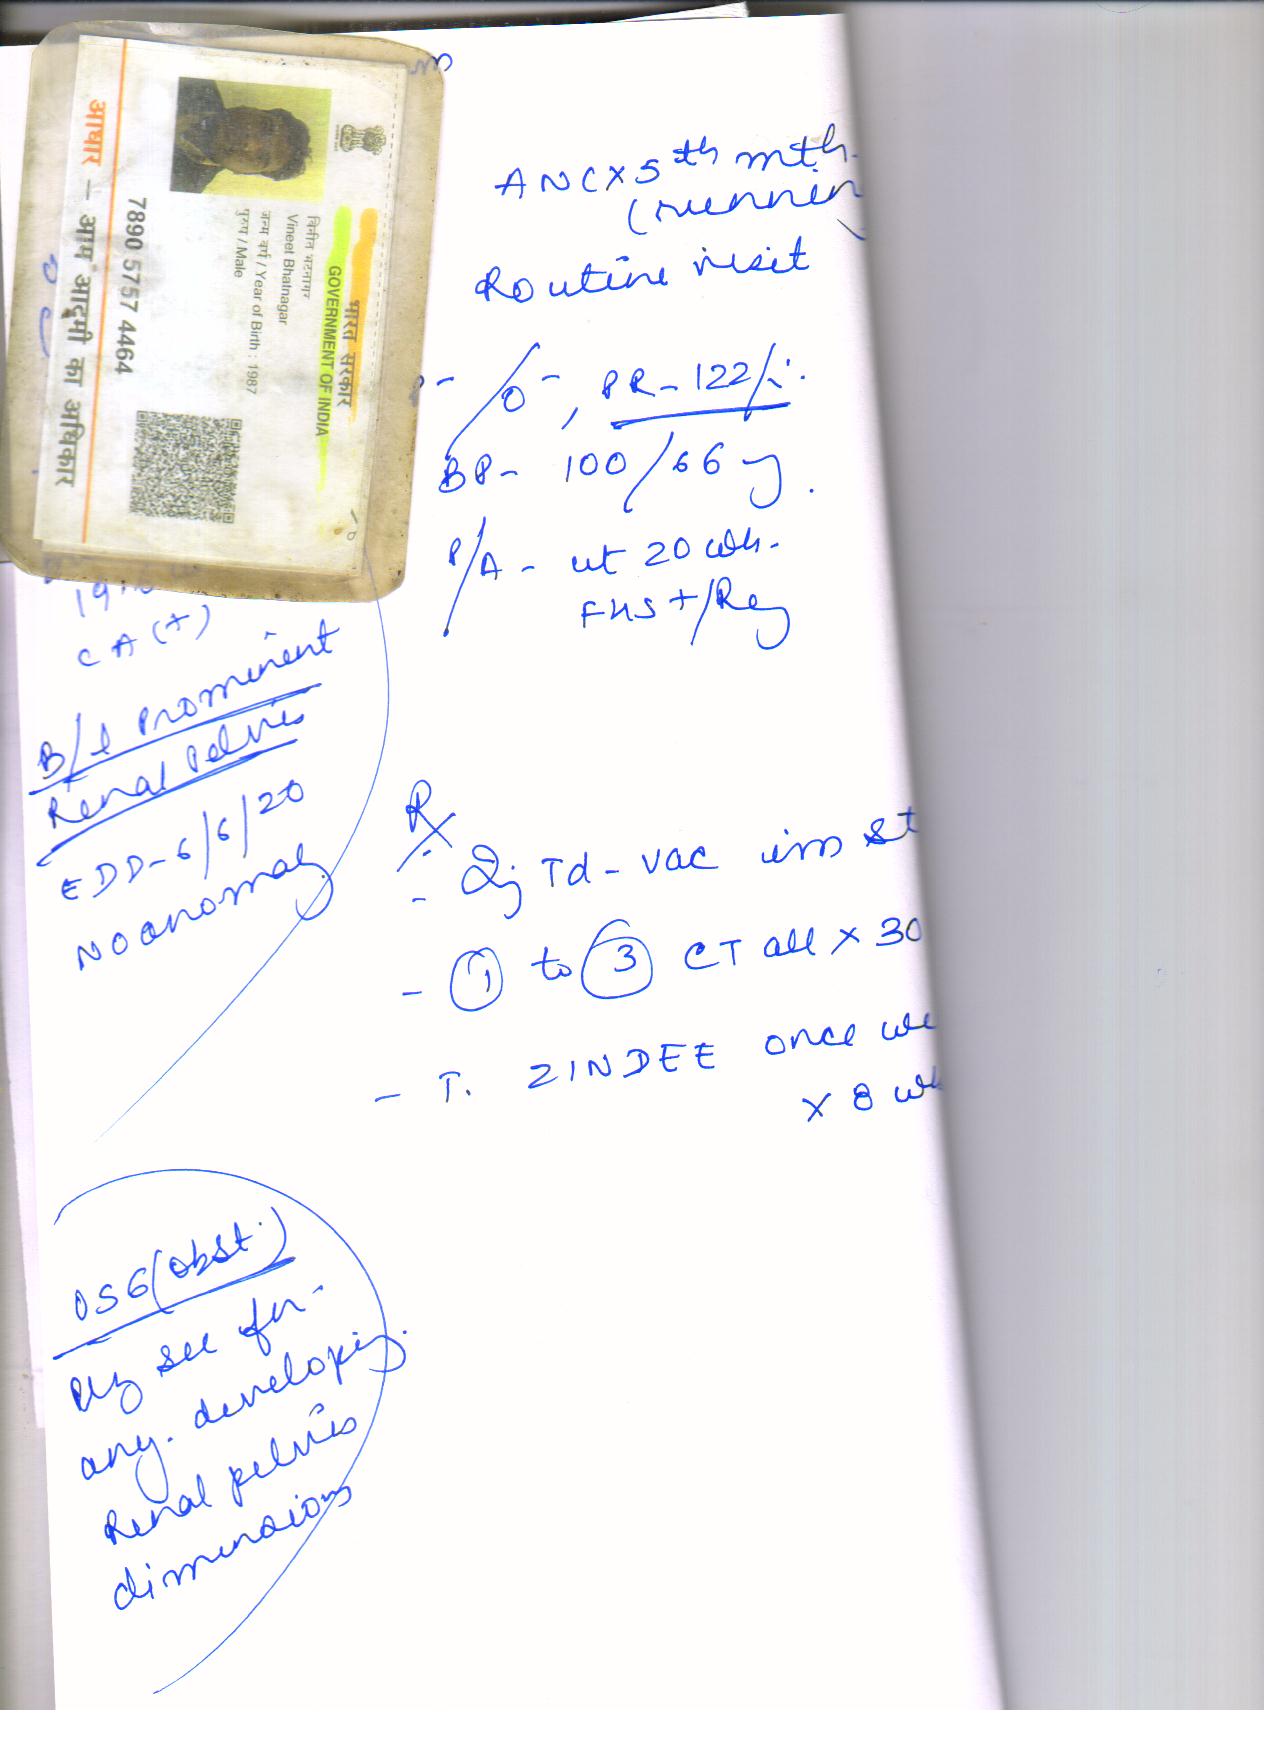 भारत सरकार
GOVERNMENT OF INDIA
विनीत भटनागर
Vineet Bhatnagar
जन्म वर्ष / Year of Birth : 1987
पुरुष / Male
7890 5757 4464
आधार — आम आदमी का अधिकार
ANC X 5th mth.
Routine visit
PR - 122/
BP - 100/66
P/A - ut 20 wk.
FHS +/Reg
CA (+)
B/L Prominent
Renal Pelvis
EDD - 6/6/20
No anomaly
Rx
- Inj Td - vac im st
- 1 to 3 CT all X 30
- T. ZINDEE once we
X 8 wk
USG (Obst.)
Plz see for
any developing
Renal pelvis
dimensions